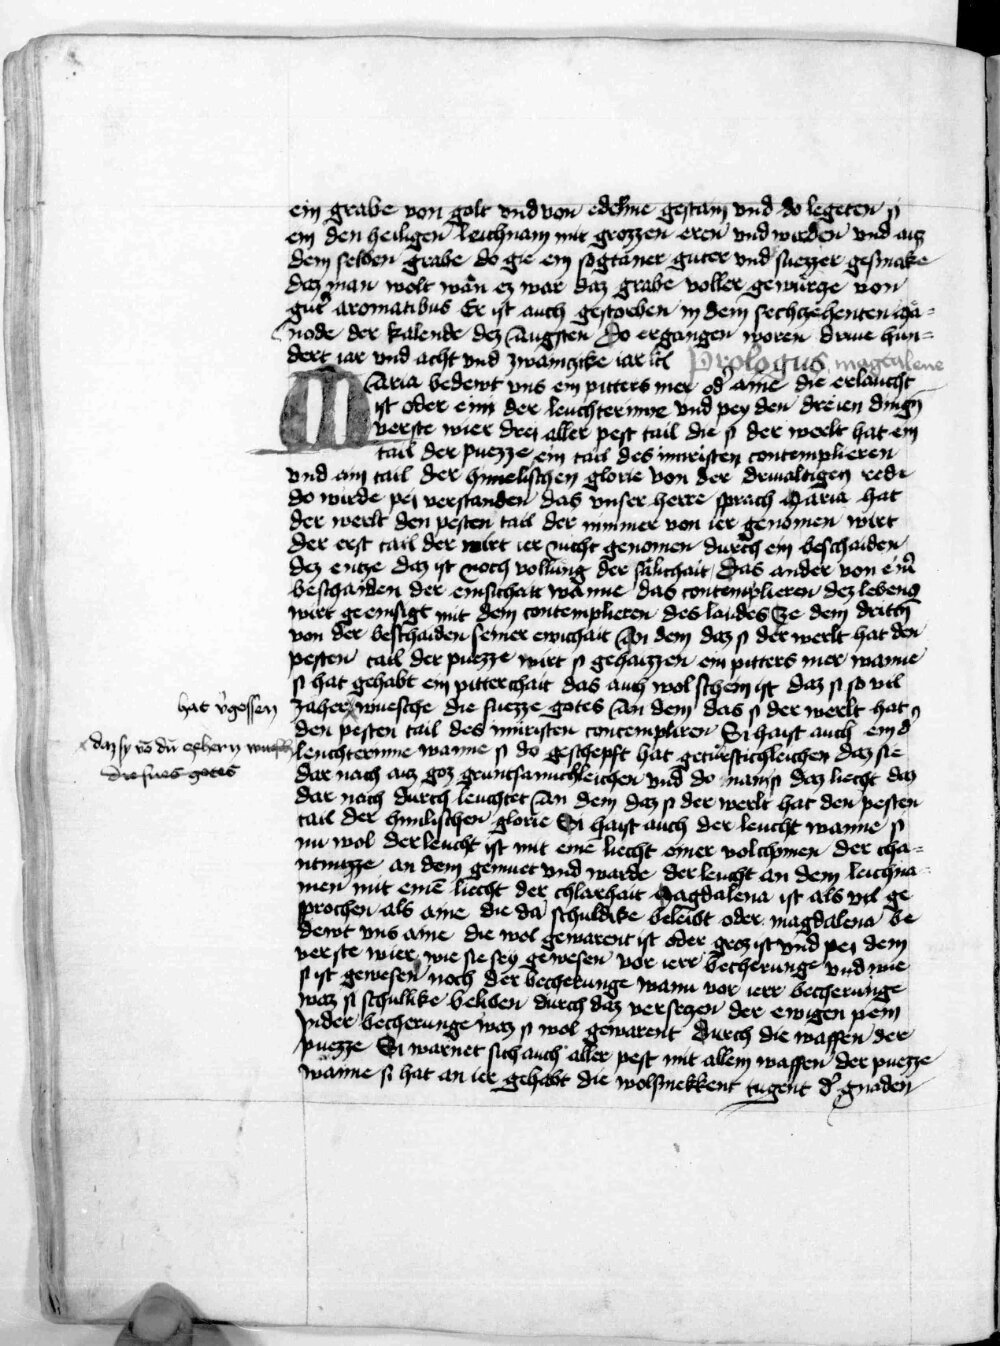 ein grabe von golt vnd von edelme gestain vnd do legeten si
ein den heiligen leichnam mit grozzen eren vnd wirden vnd auz
dem selben grabe do gie ein sogtaner guter vnd suezzer gesmake
daz man wolt wan ez war daz grabe voller gewurze von
guter aromatibus Er ist auch gestorben in dem sechzehenten ma-
node der kalende dez Augsten Do ergangen woren drive hun-
dert iar vnd acht vnd zwainzike iar
Prologus magdalene
Maria bedewt vns ein pitters mer oder aine die erlaucht
ist oder ein der leuchterinne vnd pey den dreien dingen
verste wier drei aller pest tail die si der werlt hat ein
tail der puezze ein tail des innristen contemplieren
vnd ain tail der himelischen glorie von der drivaltigen rede
do wirde pei verstanden das vnser herre sprach Maria hat
der werlt den pesten tail der nimmer von ier genomen wirt
der erst tail der wirt ier nicht genomen durch ein beschaiden
dez entze daz ist noch vollung der sälichait Das ander von einer
beschaiden der einsichait wanne das contemplieren dez lebens
wirt geeinsigt mit dem contemplieren des landes Ze dem dritten
von der beschaiden seiner ewichait An dem daz si der werlt hat den
pesten tail der puezze wirt si gehaizzen ein pitters mer wanne
si hat gehabt ein pitterchait das auch wol schein ist daz si so vil
hat vergossen
zaher wuesche die fuezze gotes An dem das si der werlt hat
den pesten tail des innristen contemplieren Si haist auch ein
daz sy von den czehern wuesch
die fues gotes
leuchterinne wanne si do geschepft hat geturstichleichen daz sie
dar nach auz goz gruntsamichleichen vnd do nam si daz liecht daz
dar nach durch leuchtet An dem daz si der werlt hat den pesten
tail der himlischen glorie Si haist auch der leucht wanne si
nu wol der leucht ist mit eine liecht einer volchomen der cha-
ntnuzze an dem gemuet vnd warde der leucht an dem leichna-
men mit eine liecht der chlarhait Magdalena ist als vil ge
sprochen als aine die da schuldike beleibt oder magdalena be
dewt vns aine die wol gewarent ist oder groz ist vnd pei dem
verste wier wie sie sey gewesen vor ierr becherunge vnd wie
si ist gewesen noch der becherunge wann vor ierr becherunge
waz si schullike beliben durch daz versezen der ewigen pein
In der becherunge waz si wol gewarent durch die waffen der
puezze Si warnet sich auch aller pest mit allem waffen der puezze
wanne si hat an ier gehabt die wolsmekkent tugent der gnaden